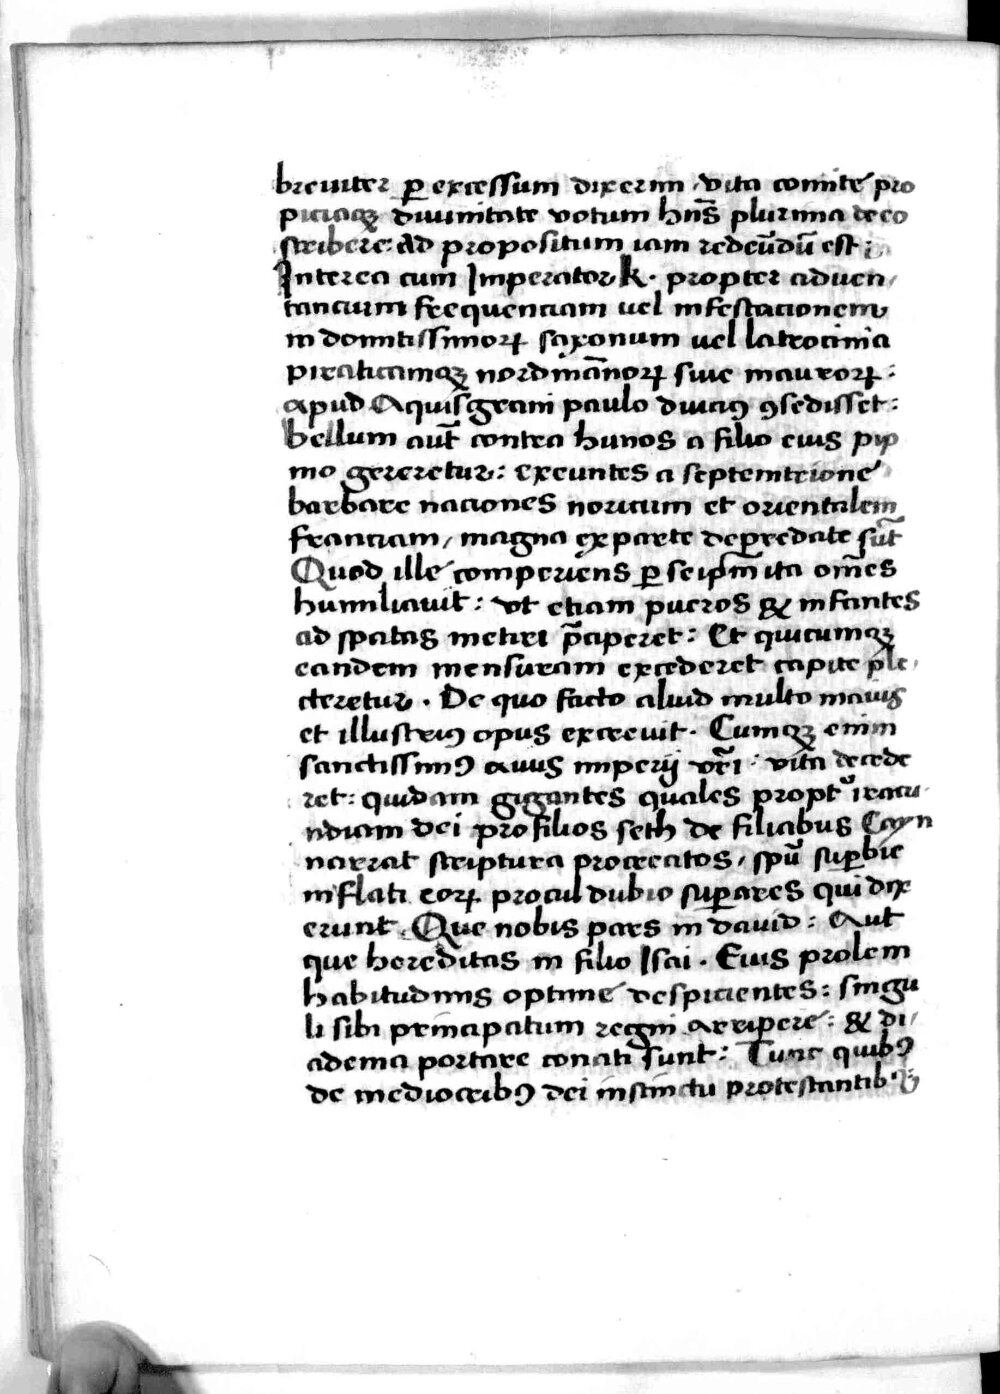 breuiter ꝑ excessum dixerim, vita comite pro
piciaqꝫ diuinitate votum hn̄s plurima de eo
scribere: ad propositum iam redeūdū est:
Interea cum Imperator K. propter aduen,
tancium frequenciam uel infestacionem
indomitissimoꝝ saxonum uel latrocinia
piraticamqꝫ nordmānoꝝ siue mauroꝝ:
apud Aquisgrani paulo diuciꝰ ꝯsedisset:
bellum aut̄ contra hunos a filio eius pip
ino gereretur: exeuntes a septemtrione
barbare naciones noricum et orientalem
franciam, magna ex parte depredate sūt
Quod ille comperiens ꝑ se ipm̄ ita om̄es
humiliauit: vt etiam pueros & infantes
ad spatas metiri p̄ciperet: Et quicumqꝫ
eandem mensuram excederet capite ple,
cteretur. De quo facto aliud multo maius
et illustriꝰ opus excreuit. Cumqꝫ enim
sanctissimꝰ auus imperij vr̄i: vita decede
ret: quidam gigantes quales propt̉ iracu,
ndiam dei pro filios seth de filiabus Cayn
narrat scriptura procreatos, spū suꝑbie
inflati eoꝝ procul dubio suꝑares qui dix
erunt. Que nobis pars in dauid: Aut
que hereditas in filio Isai. Eius prolem
habitudinis optime despicientes: singu
li sibi principatum regni arriꝑere: & di,
adema portare conati sunt: Tunc quibꝰ
de mediocribꝰ dei instinctu protestantibꝰ: